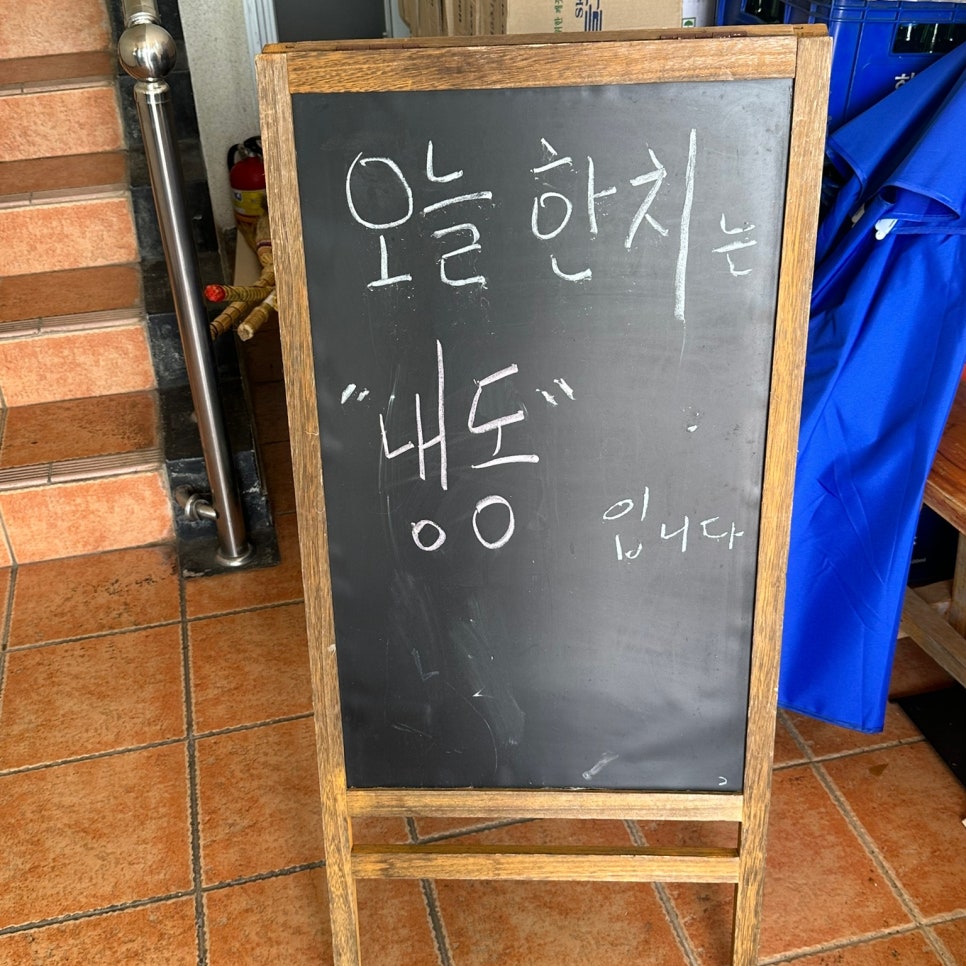 오늘 한치는
"냉동"
입니다